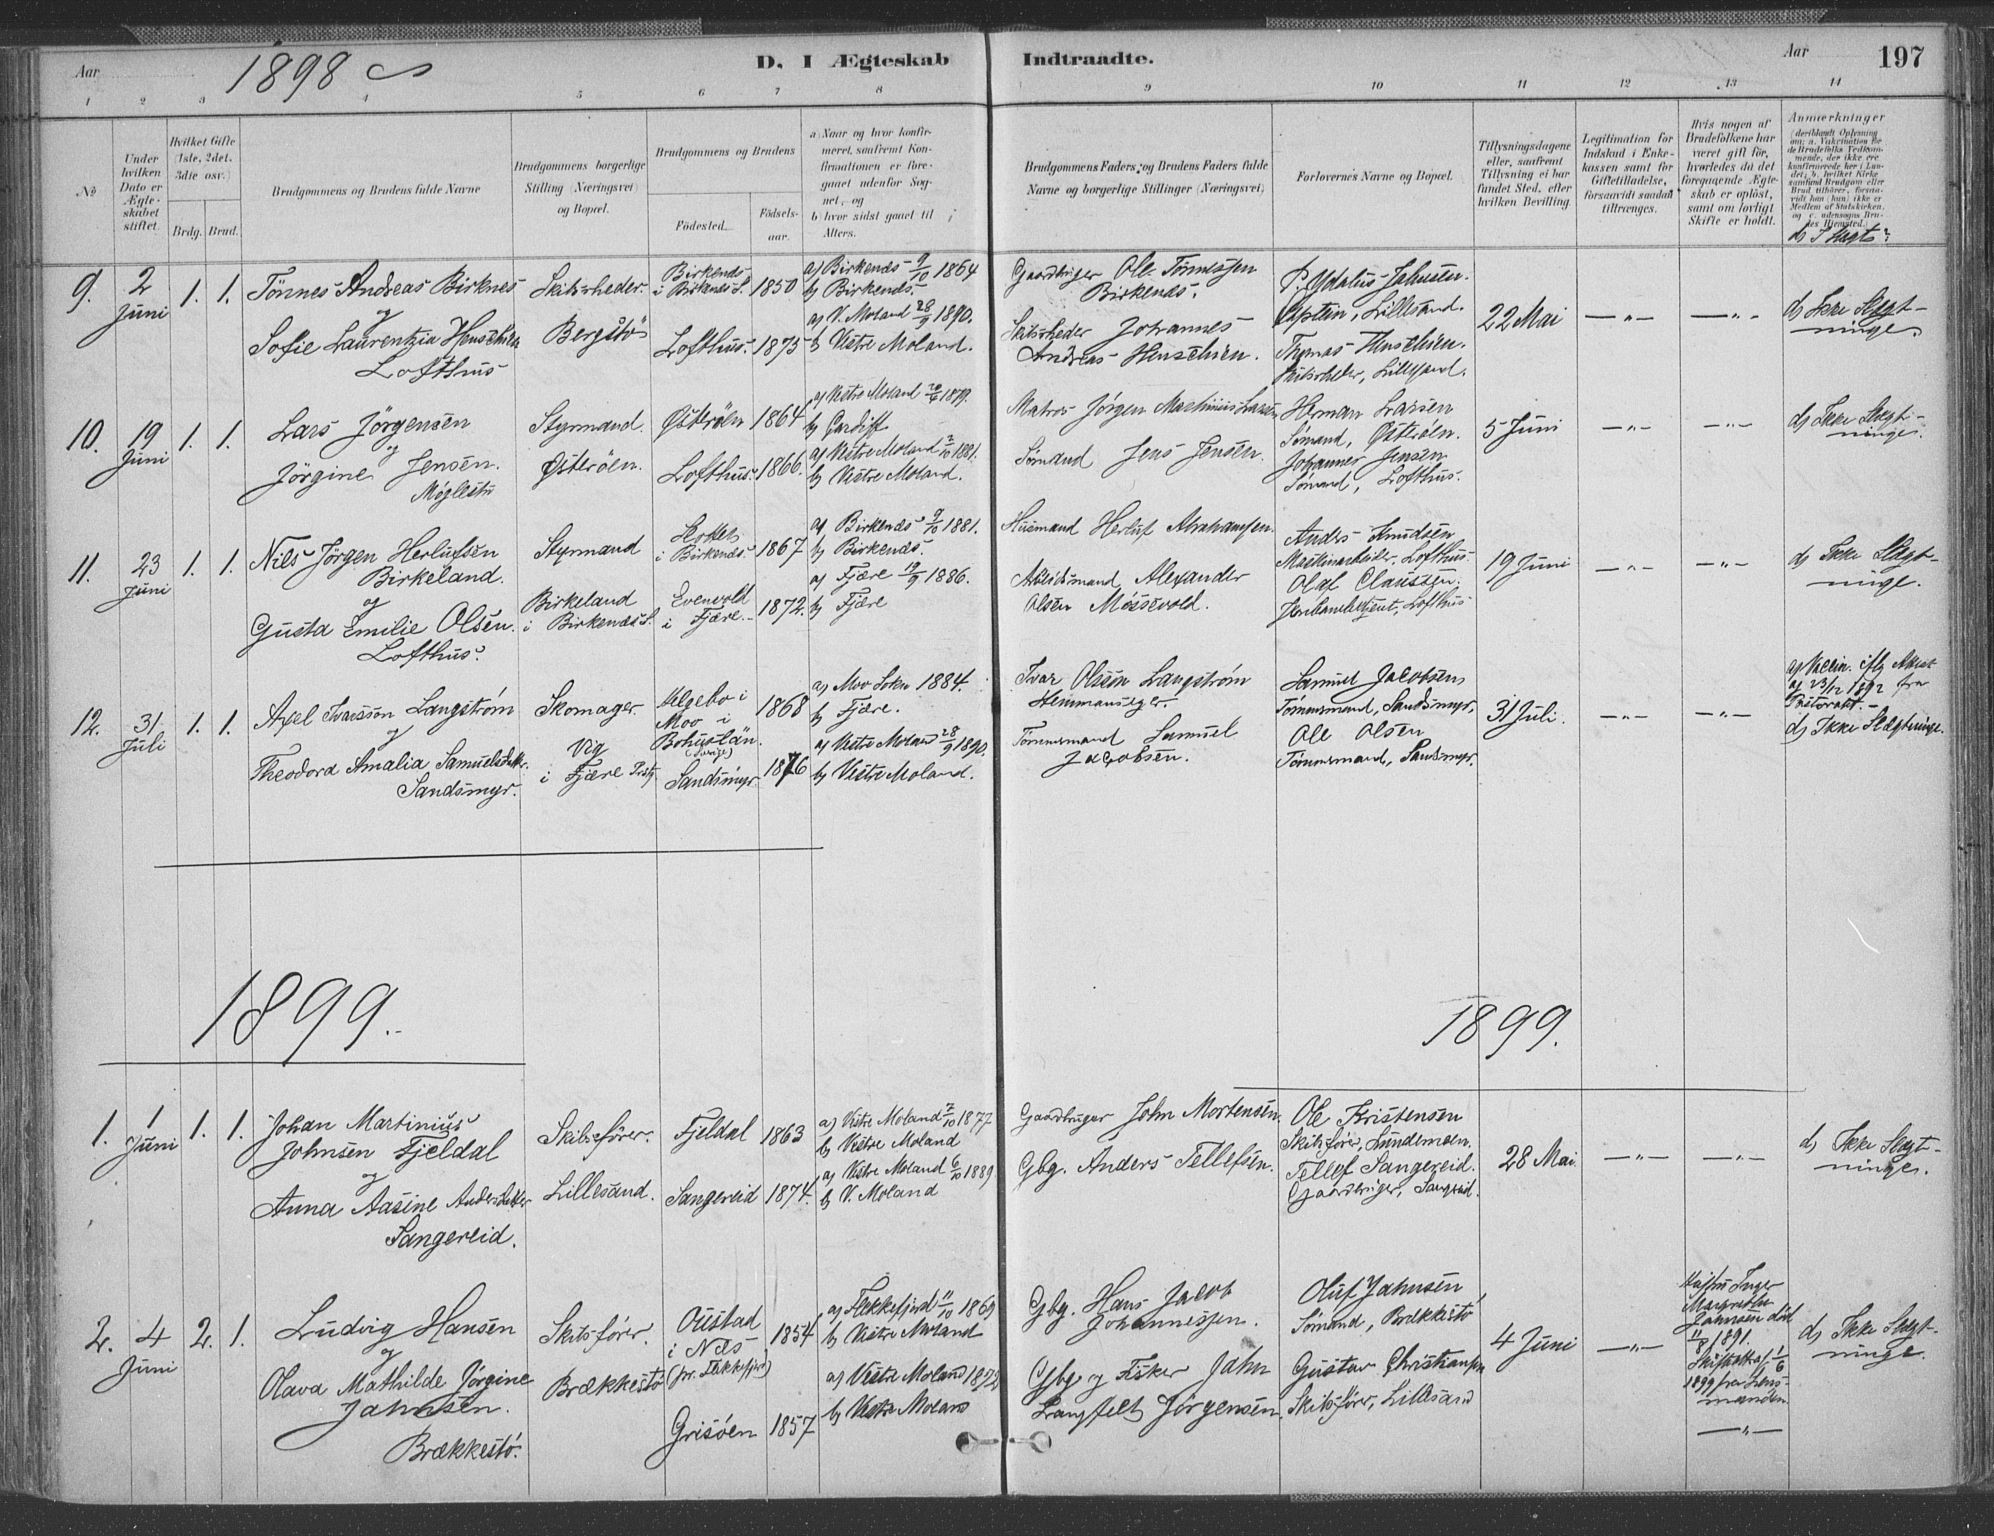 Aar
1898
D. I Ægteskab
Indtraadte.
Aar
197
1 2 3 4 5 6 7 8 9 10 11 12 13 14
№
Under hvilken Dato er Ægteskabet stiftet.
Hvilket Gifte (1ste, 2det, 3die osv.)
Brdg. Brud.
Brudgommens og Brudens fulde Navne
Brudgommens borgerlige Stilling (Næringsvei) og Bopæl.
Brudgommens og Brudens
Fødested.
Fødselsaar.
a) Naar og hvor konfirmeret, saafremt Konfirmationen er foregaaet udenfor Sognet, og
b) hvor sidst gaaet til Alters.
Brudgommens Faders og Brudens Faders fulde Navne og borgerlige Stillinger (Næringsvei)
Forlovernes Navne og Bopæl.
Tillysningsdagene eller, saafremt Tillysning ei har fundet Sted, efter hvilken Bevilling.
Legitimation for Indskud i Enkekassen samt for Giftetilladelse, forsaavidt saadan tiltrænges.
Hvis nogen af Brudefolkene har været gift før, hvorledes da det foregaaende Ægteskab er opløst, samt om lovligt Skifte er holdt.
Anmærkninger
9.
2 Juni
1. 1.
Tönnes Andreas Birknes
og
Sofie Laurentzia Henschien
Lofthus
Skibsrheder.
Bergstö
Birkenes
i Birkenes S. 1850
Lofthus. 1875
a) Birkenes 9/10 1864
b) Birkenes.
a) V. Moland 28/9 1890.
b) Vestre Moland.
Gaardbruger Ole Tönnessen
Birkenes.
Skibsrheder Johannes
Andreas Henschien.
P. Ydalus Jahnsen.
Captein, Lillesand.
Thomas Henschien.
Skibsrheder, Lillesand.
22 Mai
— „ —
— „ —
d) Ikke Slægt-
ninge.
10.
19 Juni
1. 1.
Lars Jörgensen
og
Jörgine Jensen.
Möglestu
Styrmand.
Østeröen.
Østeröen 1864
Lofthus. 1866
a) Vestre Moland 1879.
b) Cardiff
a) Vestre Moland 2/10 1881.
b) Vestre Moland.
Matros Jörgen Martinius Larsen
Sömand Jens Jensen.
Herman Larsen
Sömand, Østeröen.
Johannes Jensen
Sömand, Lofthus.
5 Juni
— „ —
— „ —
d) Ikke Slægt-
ninge.
11.
23 Juni
1. 1.
Nils Jörgen Herlufsen
Birkeland.
og
Gusta Emilie Olsen.
Lofthus.
Styrmand
Birkeland
i Birkenes S.
i Birkenes. 1867
Evenvold
i Fjære. 1872.
a) Birkenes 9/10 1881.
b) Birkenes.
a) Fjære 19/9 1886.
b) Fjære
Husmand Herluf Abrahamsen.
Arbeidsmand Alexander
Olsen Mössevold.
Anders Knudsen
Maskinarbeider, Lofthus.
Olaf Claussen.
Jernbanebetjent, Lofthus
19 Juni
— „ —
— „ —
d) Ikke Slægt-
ninge.
12.
31 Juli
1. 1.
Axel Ivarsson Langström
og
Theodora Amalia Samuelsdatter
Sandsmyr.
Skomager.
Vig
i Fjære
Moo i
Bohuslän. 1868
(Sverige)
Sandsmyr. 1876
a) Moo Sokn 1884.
b) Fjære.
a) Vestre Moland 28/9 1890.
b) Vestre Moland.
Ivar Olsson Langström
Hemmanseger.
Tömmermand Samuel
Jacobsen.
Samuel Jacobsen
Tömmermand, Sandsmyr.
Ole Olsen
Tömmermand, Sandsmyr.
31 Juli.
— „ —
— „ —
a) Vaccin. iflg Attest
af 23/12 1892 fra
Pastoratet.
d) Ikke Slægtninge.
1899.
1899.
1.
1 Juni
1. 1.
Johan Martinius
Johnsen Fjeldal
og
Anna Aasine Andersdatter
Sangereid.
Skibsförer.
Lillesand.
Fjeldal 1863
Sangereid 1874.
a) Vestre Moland 7/10 1877
b) Vestre Moland
a) Vestre Moland 6/10 1889.
b) V. Moland
Gaardbruger John Mortensen.
Gbg. Anders Tellefsen.
Ole Kristensen
Skibsförer, Sundemoen.
Tellef Sangereid.
Gaardbruger, Sangreid.
28 Mai.
— „ —
— „ —
d) Ikke Slægt-
ninge.
2.
4 Juni
2. 1.
Ludvig Hansen
og
Olava Mathilde Jörgine
Jahnsen.
Brækkestö.
Skibsförer.
Brækkestö
Oustad
i Næs 1854
(pr. Flekkefjord)
Grisöen 1857
a) Flekkefjord 11/10 1869
b) Vestre Moland
a) Vestre Moland 1872
b) Vestre Moland
Gbg. Hans Jacob
Johannessen.
Gbg. og Fisker Jahn
Langfelt Jörgensen.
Oluf Jahnsen
Sömand, Brækkestö
Gustav Christiansen
Skibsförer, Lillesand
4 Juni
— „ —
Hustru Inger
Margrethe
Jahnsen död
11/8 1891.
Skifteattest 1/6
1899 fra Lens-
manden.
— „ —
d) Ikke Slægt-
ninge.